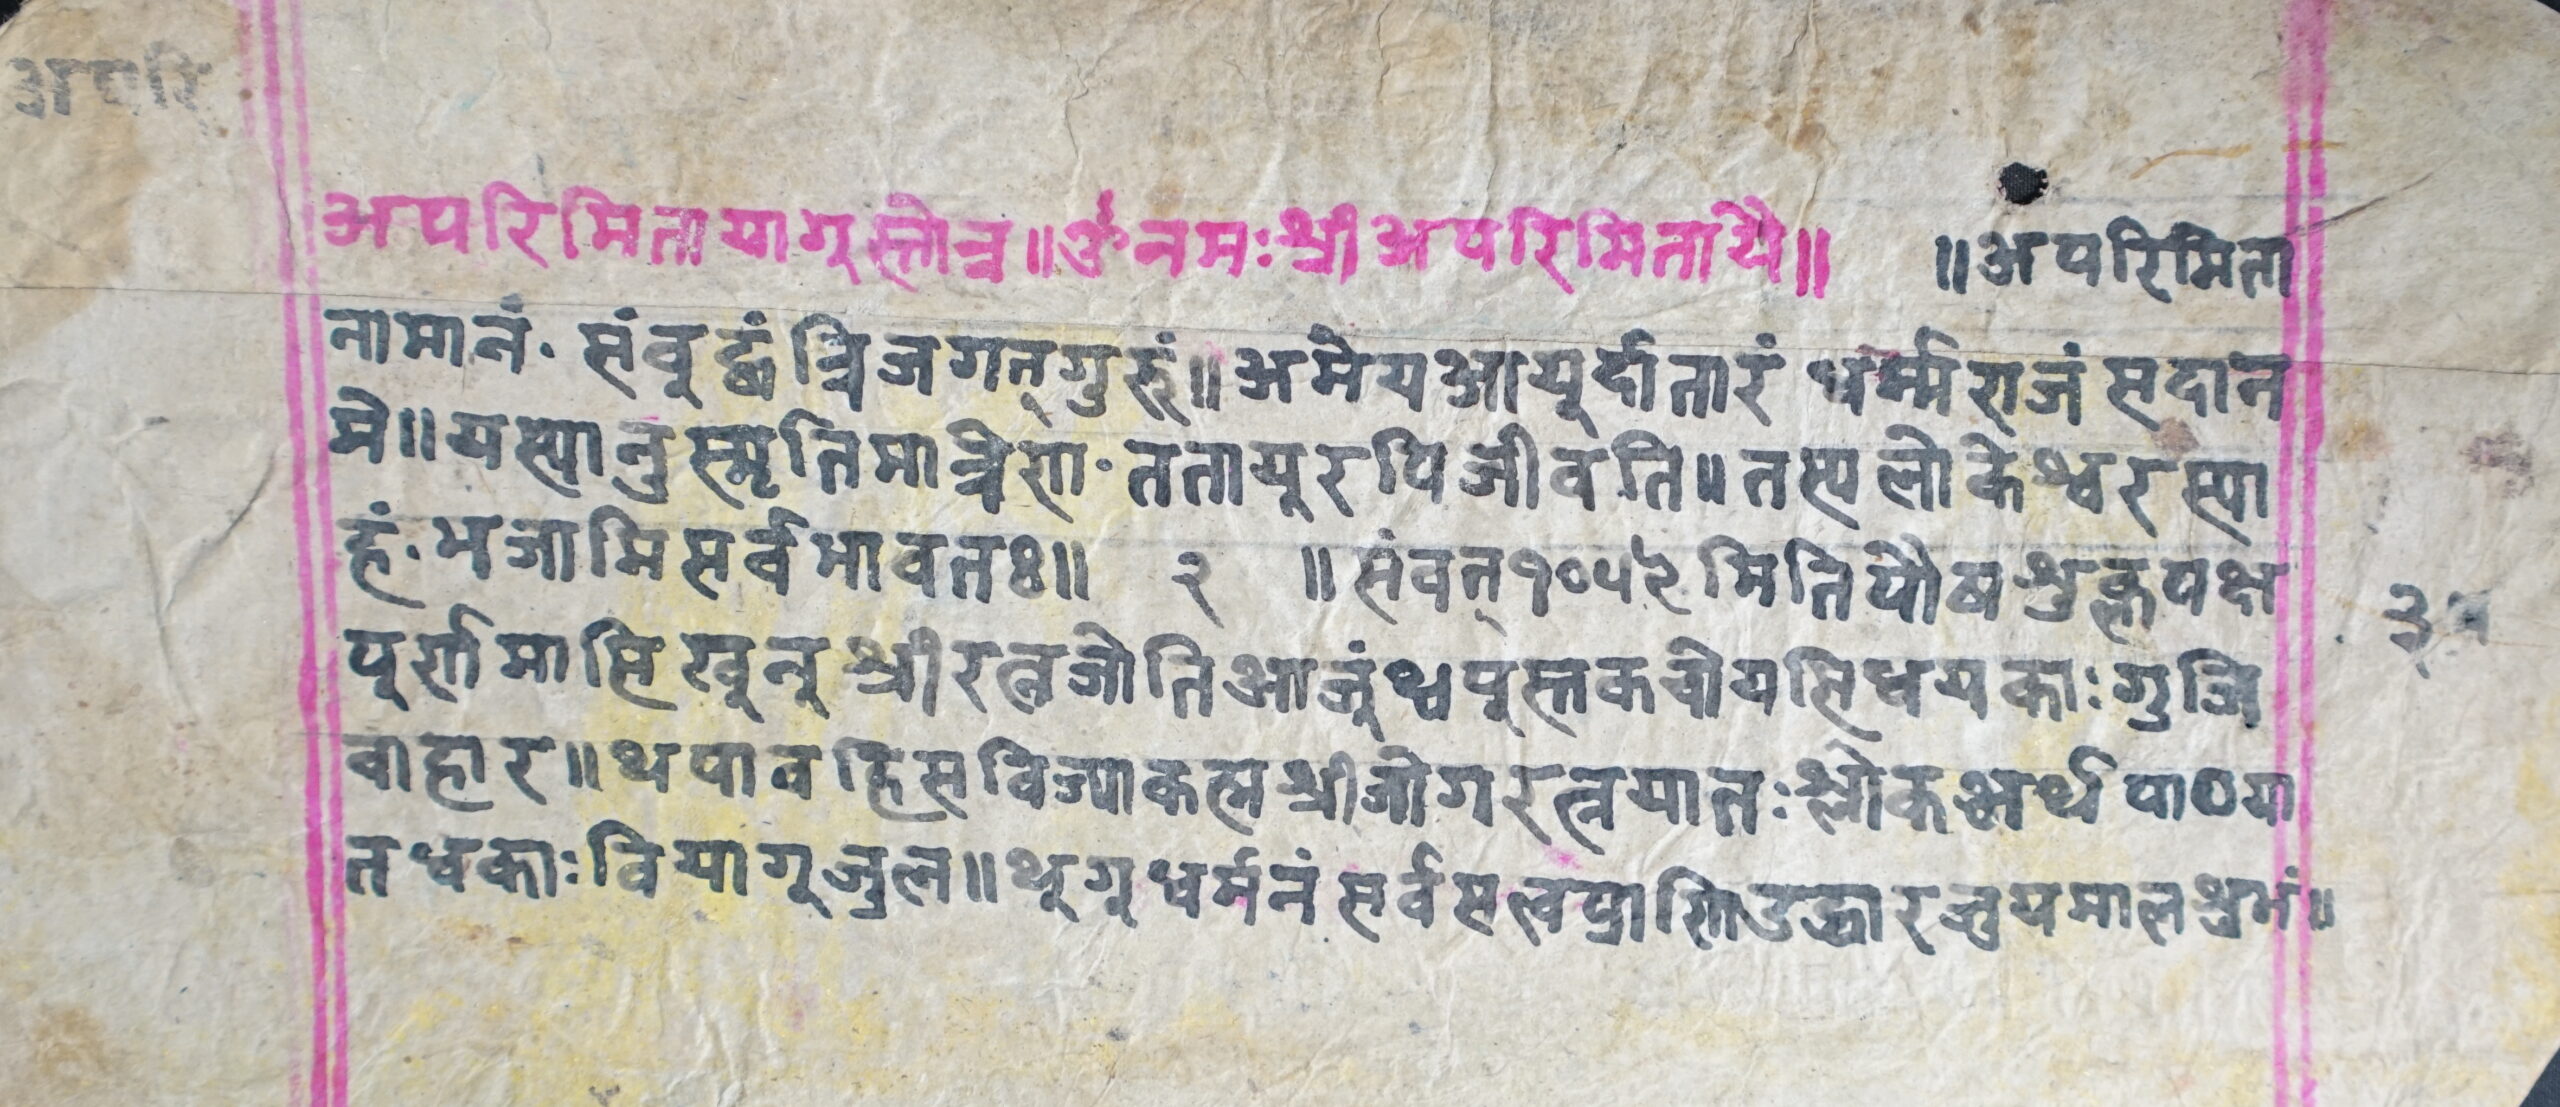 अपरि
अपरिमितायागूस्तोत्र॥ॐनमःश्रीअपरिमितायै॥ ॥अपरिमिता
नामानं· संवूद्धं त्रिजगत्गुरूं॥अमेयआयूर्दातारं धर्म्मराजं सदान
मे॥यस्यानुस्मृतिमात्रेण· ततायूरपि जीवति॥तस्य लोकेश्वरस्या
हं·भजामि सर्वभावतः॥ २ ॥संवत्१०५२ मिति पौष शुक्लपक्ष
पूर्णमासि खूनू श्रीरत्नजोति आजुंथ्व पूस्तक चोयसिधयकाः गुजि
वाहार॥थपाव हिस विज्याकह्म श्रीजोगरत्नयातःश्लोकअर्थ पाठया
तधकाः वियागू जुल॥थूगू धर्मनं सर्वसत्वप्राणिउद्धारजुयमाल शुभं॥